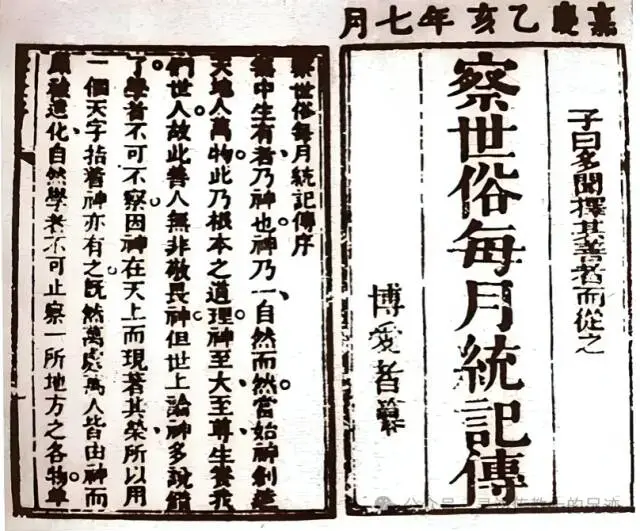 嘉慶乙亥年七月
子曰多聞擇其善者而從之
察世俗每月統記傳
博愛者纂
察世俗每月統記傳序
無中生有者、乃神也。神乃一、自然而然。當始神創造
天地人萬物、此乃根本之道理。神至大、至尊、生養我
們世人、故此善人無非敬畏神。但世上論神多說錯
了、學者不可不察。因神在天上而現著其榮、所以用
一個天字指著神亦有之。既然萬處萬人、皆由神而
原被造化、自然學者不可止察一所地方之各物、單
公众号